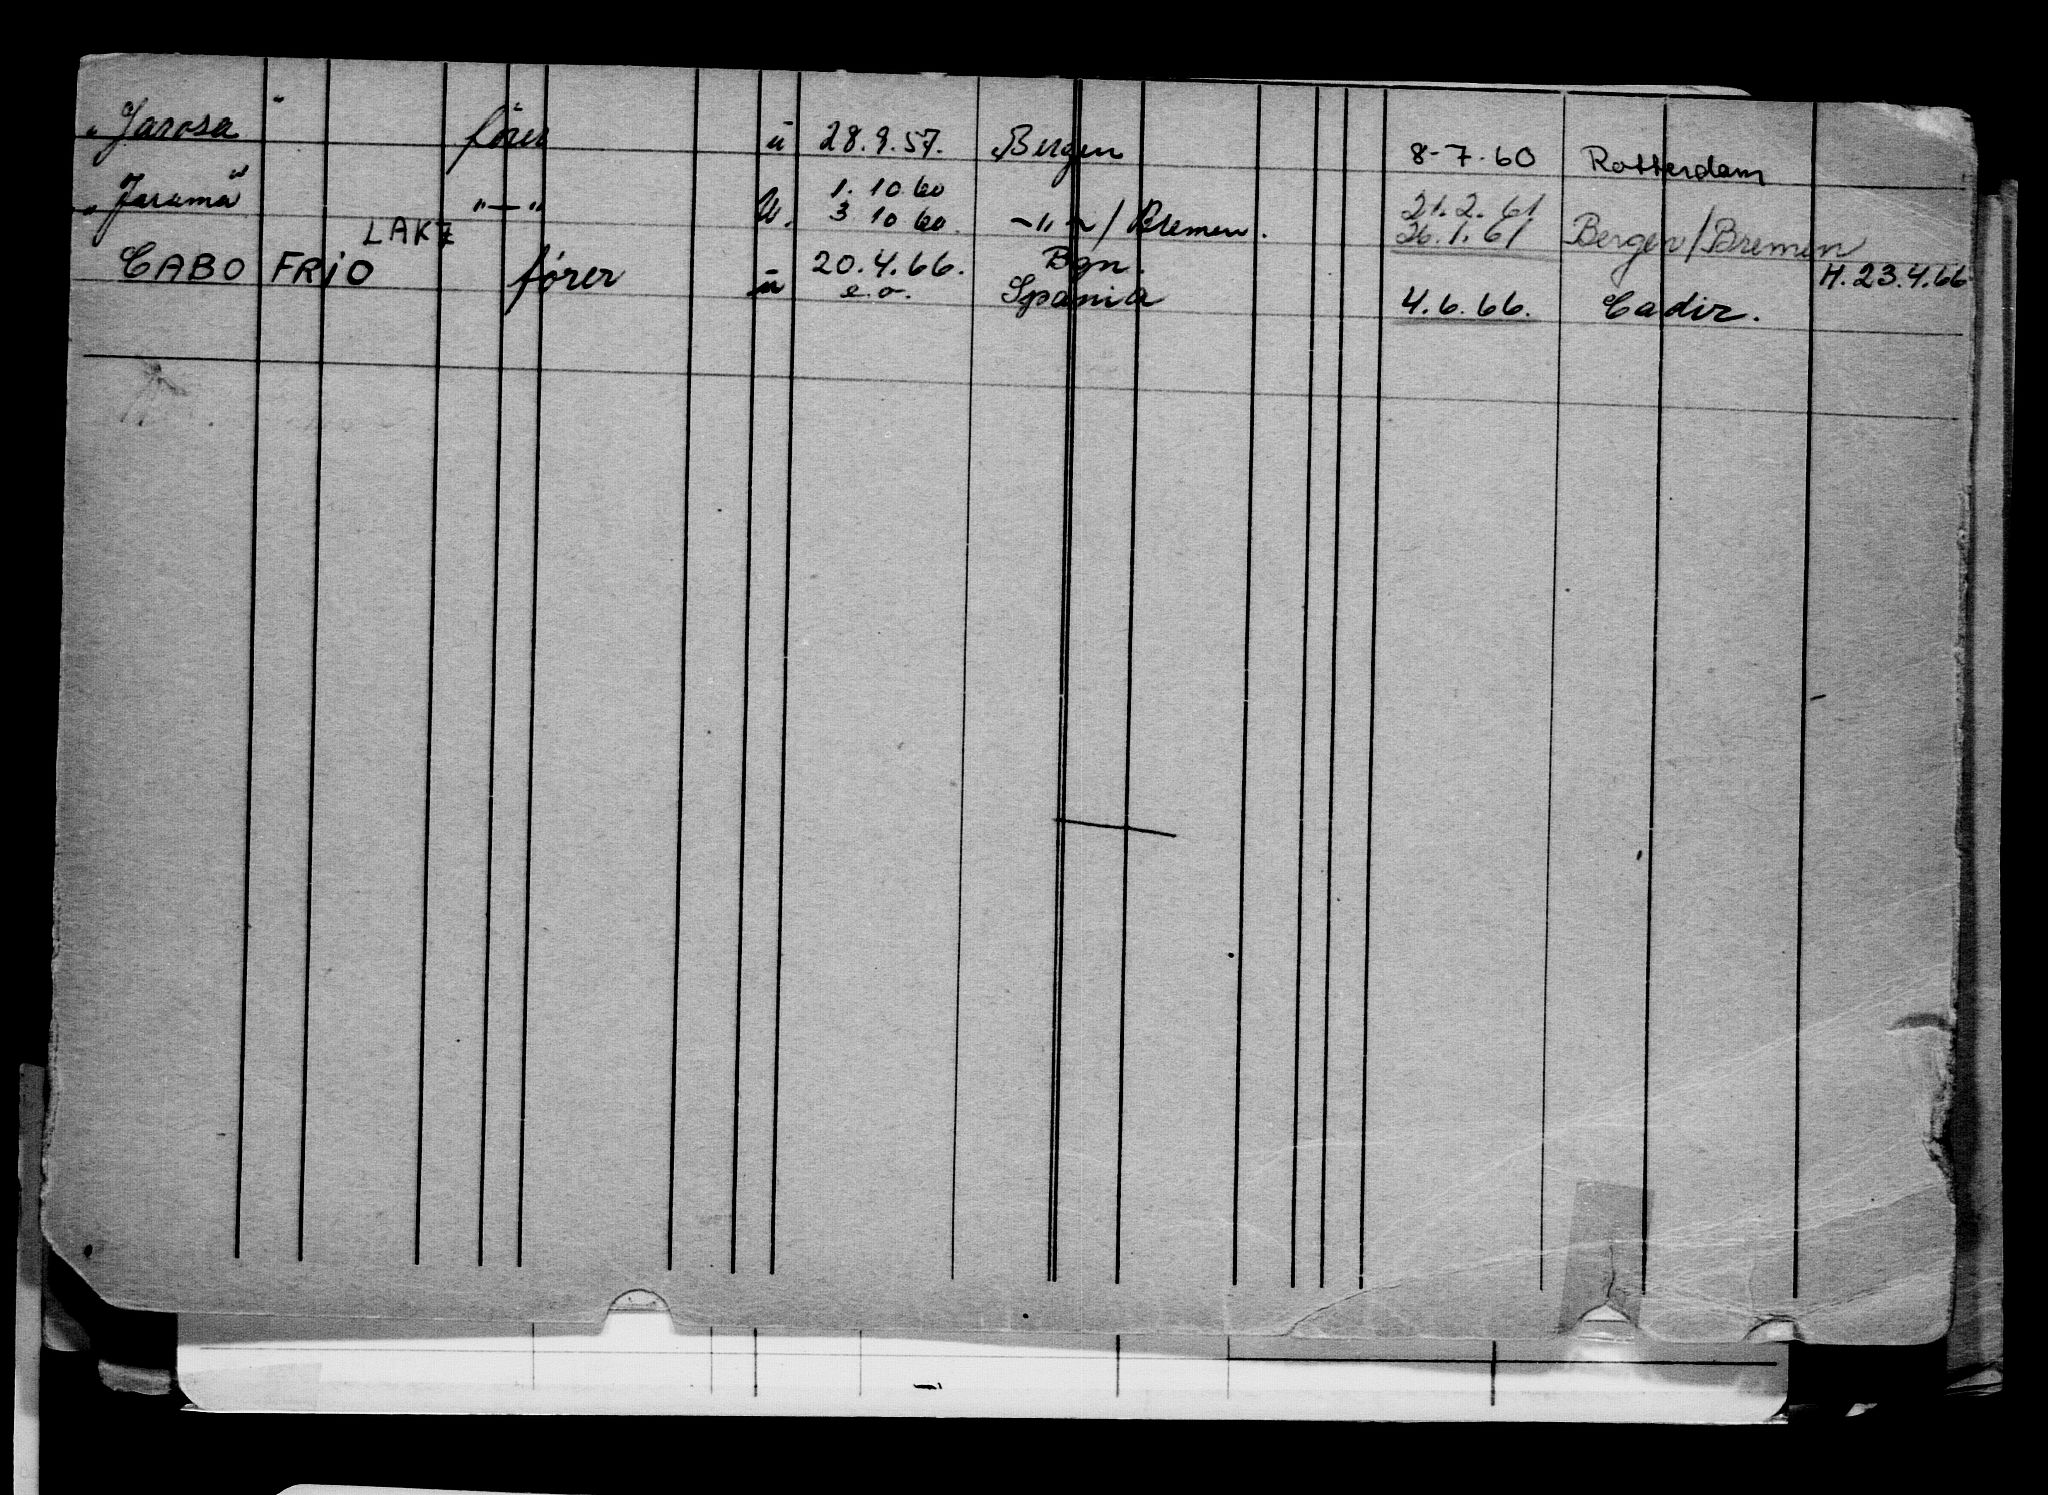 "Jarosa" fører u 28.9.57. Bergen 8-7.60 Rotterdam
"Jarama" "—" u. 1.10 60 21.2.61
3 10 60. -"-/Bremen. 26.1.61 Bergen/Bremen
LAKZ
CABO FRIO fører u 20.4.66. Bgn. H. 23.4.66
e.o. Spania 4.6.66. Cadiz.